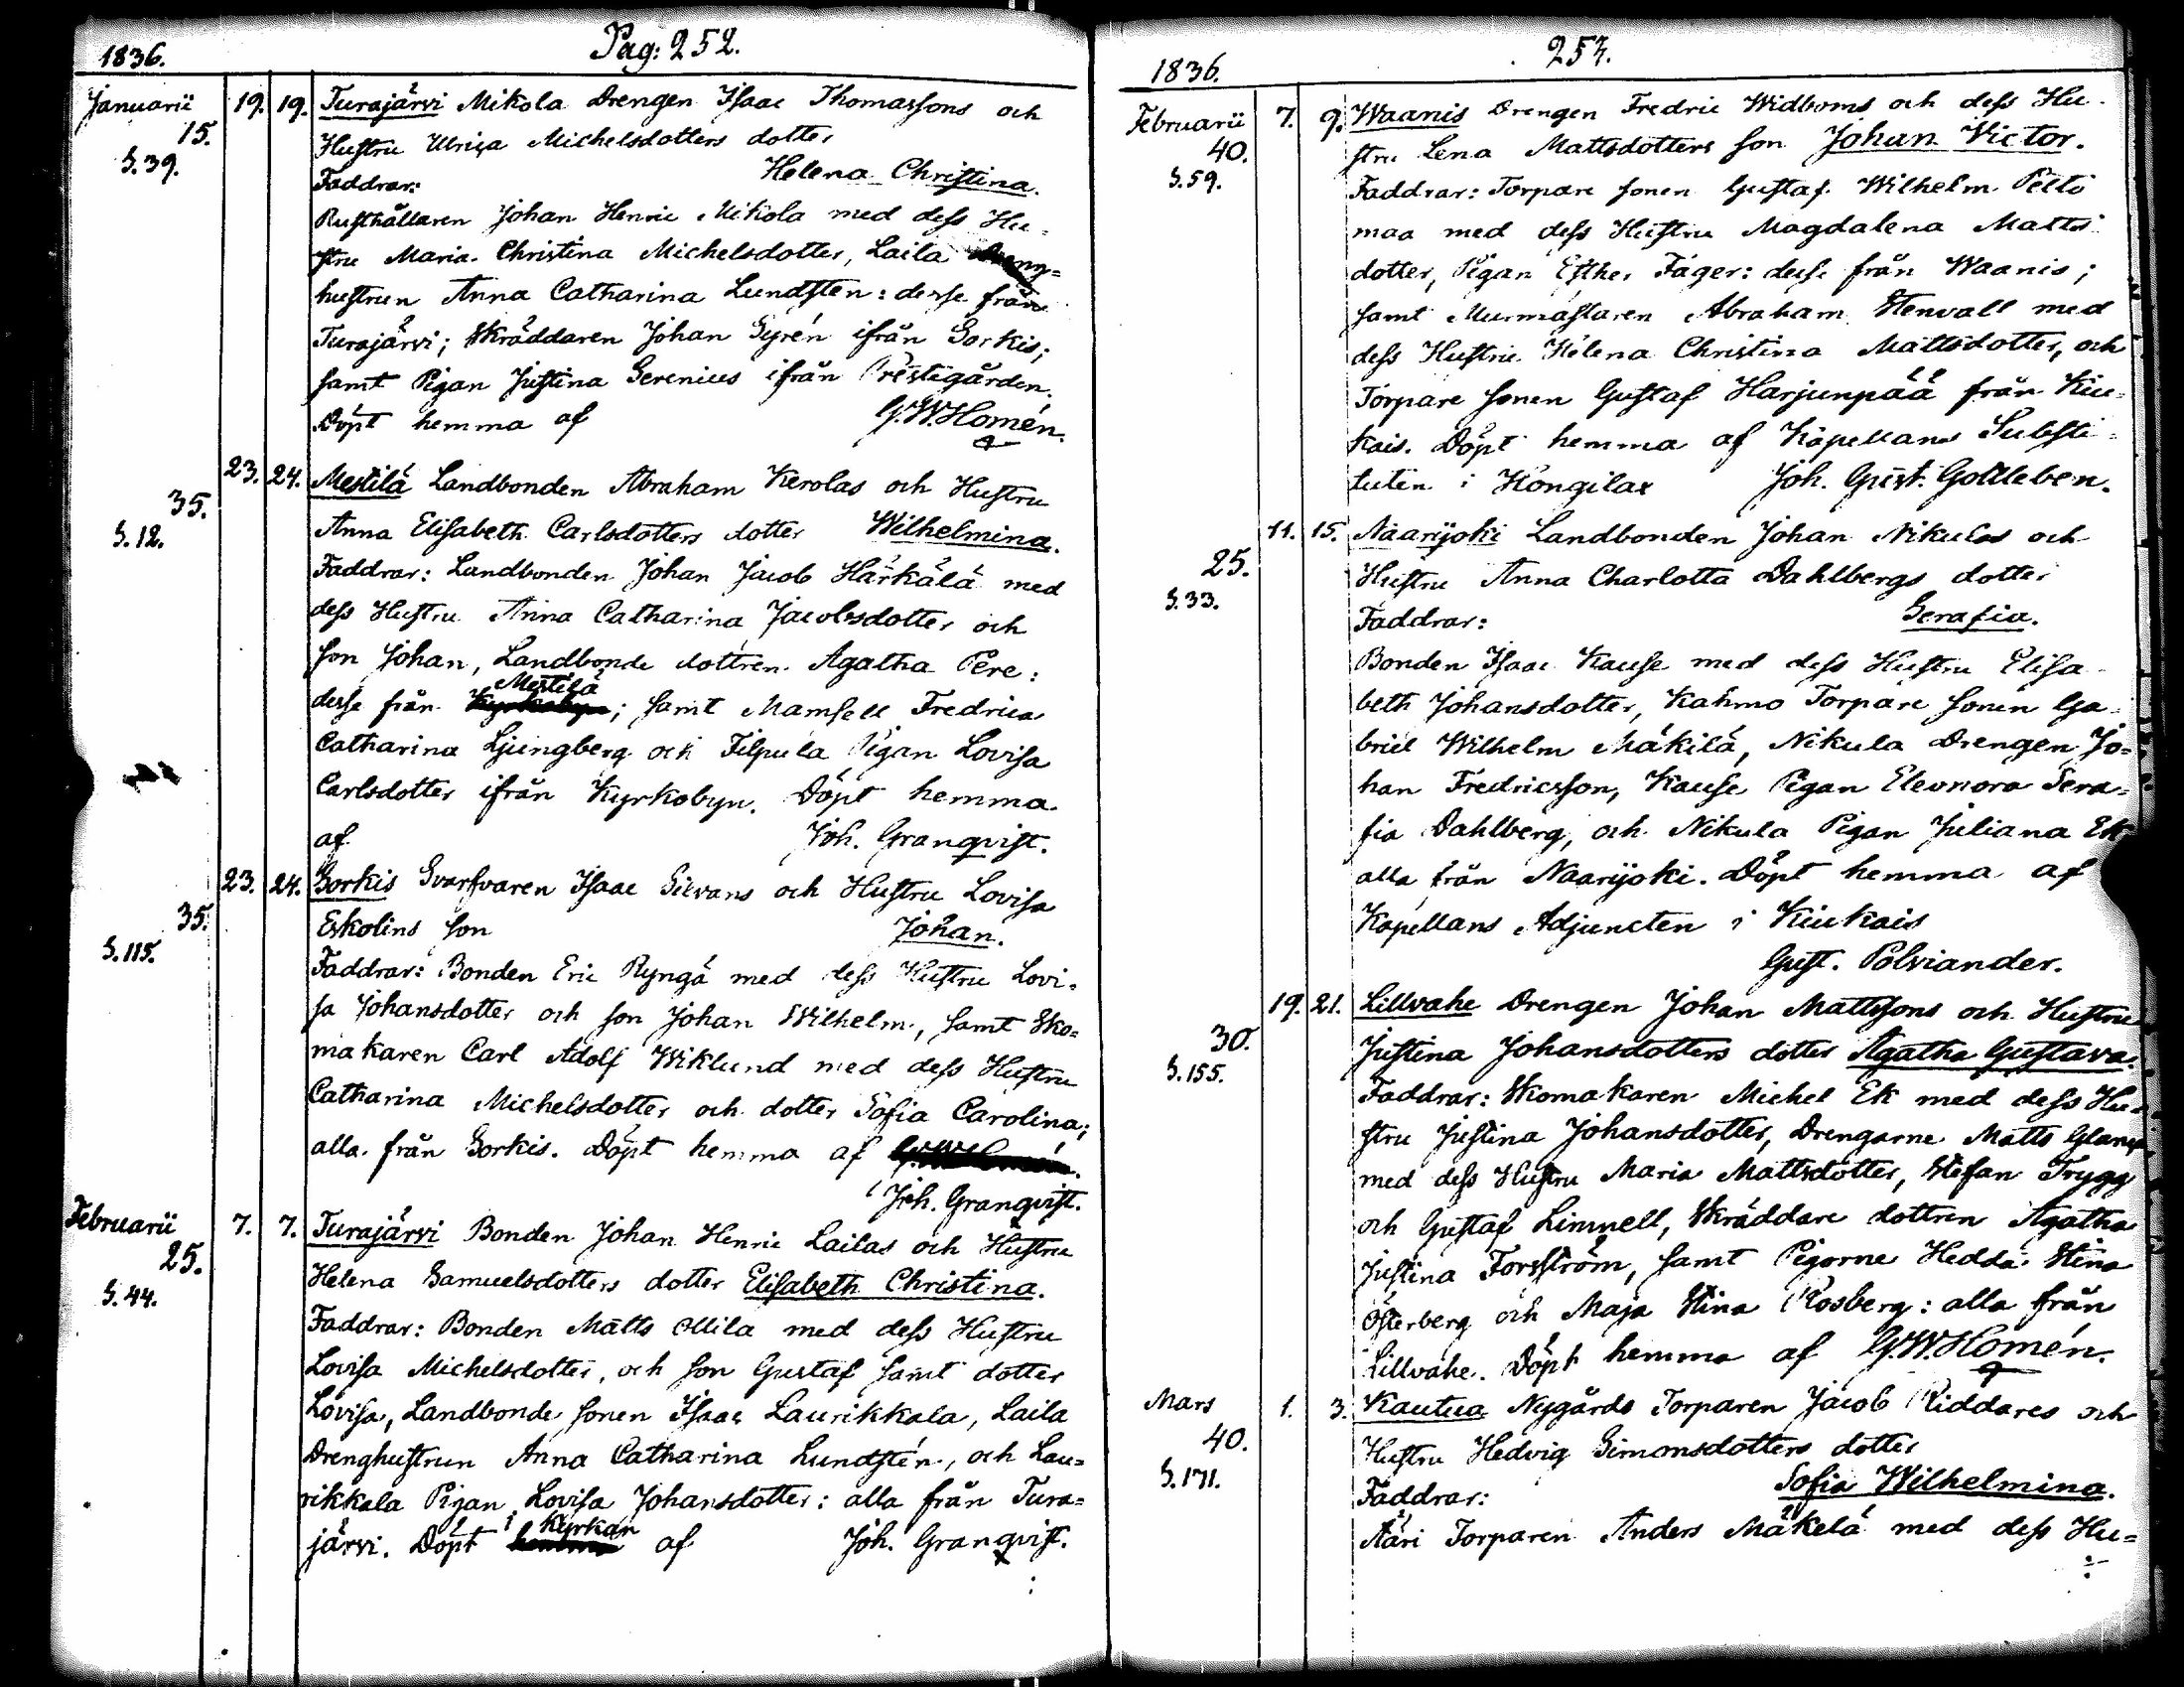 1836.
Pag: 252.
Januarii 19. 19. Turajärvi Mikola Drengen Isaac Thomassons och
15. Hustru Ulrica Michelsdotters dotter
S. 39. Helena Christina.
Faddrar:
Rusthållaren Johan Henric Mikola med dess Hu=
stru Maria Christina Michelsdotter, Laila Dreng=
hustrun Anna Catharina Lundstén: desse från
Turajärvi; Skräddaren Johan Syrén ifrån Sorkis;
samt Pigan Justina Serenius ifrån Prestegården.
Döpt hemma af G.W. Homén.
23. 24. Mestilä Landbonden Abraham Kerolas och Hustru
35. Anna Elisabeth Carlsdotters dotter Wilhelmina.
S. 12. Faddrar: Landbonden Johan Jacob Härkälä med
dess Hustru Anna Catharina Jacobsdotter och
son Johan, Landbonde dottren Agatha Pere:
Mestilä
desse från Kyrkobyn; samt Mamsell Fredrica
Catharina Ljungberg och Filpula Pigan Lovisa
Carlsdotter ifrån Kyrkobyn. Döpt hemma
af Joh. Granqvist.
23. 24. Sorkis Svarfvaren Isaac Sievans och Hustru Lovisa
35. Eskolins son Johan.
S. 115. Faddrar: Bonden Eric Ryngä med dess Hustru Lovi=
sa Johansdotter och son Johan Wilhelm, samt Sko=
makaren Carl Adolf Wiklund med dess Hustru
Catharina Michelsdotter och dotter Sofia Carolina;
alla från Sorkis. Döpt hemma af G.W. Homén.
Joh. Granqvist.
Februarii 7. 7. Turajärvi Bonden Johan Henric Lailas och Hustru
25. Helena Samuelsdotters dotter Elisabeth Christina.
S. 44. Faddrar: Bonden Matts Ollila med dess Hustru
Lovisa Michelsdotter, och son Gustaf samt dotter
Lovisa, Landbonde sonen Isaac Laurikkala, Laila
Drenghustrun Anna Catharina Lundstén, och Lau=
rikkala Pigan Lovisa Johansdotter: alla från Tura=
i Kyrkan
järvi. Döpt hemma af Joh. Granqvist.
1836.
257.
Februarii 7. 9. Waanis Drengen Fredric Widboms och dess Hu=
40. stru Lena Mattsdotters son Johan Victor.
S. 59. Faddrar: Torpare sonen Gustaf Wilhelm Pelto
maa med dess Hustru Magdalena Matts
dotter, Pigan Esther Fager: desse från Waanis;
samt Murmästaren Abraham Stenvall med
dess Hustru Helena Christina Mattsdotter, och
Torpare sonen Gustaf Harjunpää från Kiu=
kais. Döpt hemma af Kapellans Substi=
tuten i Hongilax Joh. Gust. Gottleben.
11. 15. Naarijoki Landbonden Johan Nikulas och
25. Hustru Anna Charlotta Dahlbergs dotter
S. 33. Faddrar: Serafia.
Bonden Isaac Kause med dess Hustru Elisa
beth Johansdotter, Kahmo Torpare sonen Ga=
briel Wilhelm Mäkilä, Nikula Drengen Jo=
han Fredricsson, Kause Pigan Eleonora Sera=
fia Dahlberg, och Nikula Pigan Juliana Ek
alla från Naarijoki. Döpt hemma af
Kapellans Adjuncten i Kiukais
Gust. Polviander.
19. 21. Lillvahe Drengen Johan Mattssons och Hustru
30. Justina Johansdotters dotter Agatha Gustava.
S. 155. Faddrar: Skomakaren Michel Ek med dess Hu=
stru Justina Johansdotter, Drengarne Matts
med dess Hustru Maria Mattsdotter, Stefan Trygg
och Gustaf Limnell, Skräddare dottren Agatha
Justina Forsström, samt Pigorne Hedda Stina
Österberg och Maja Stina Rosberg: alla från
Lillvahe. Döpt hemma af G.W. Homén.
Mars 1. 3. Kautua Nygårds Torparen Jacob Riddares och
40. Hustru Hedvig Simonsdotters dotter
S. 171. Faddrar: Sofia Wilhelmina.
Aäri Torparen Anders Mäkelä med dess Hu=